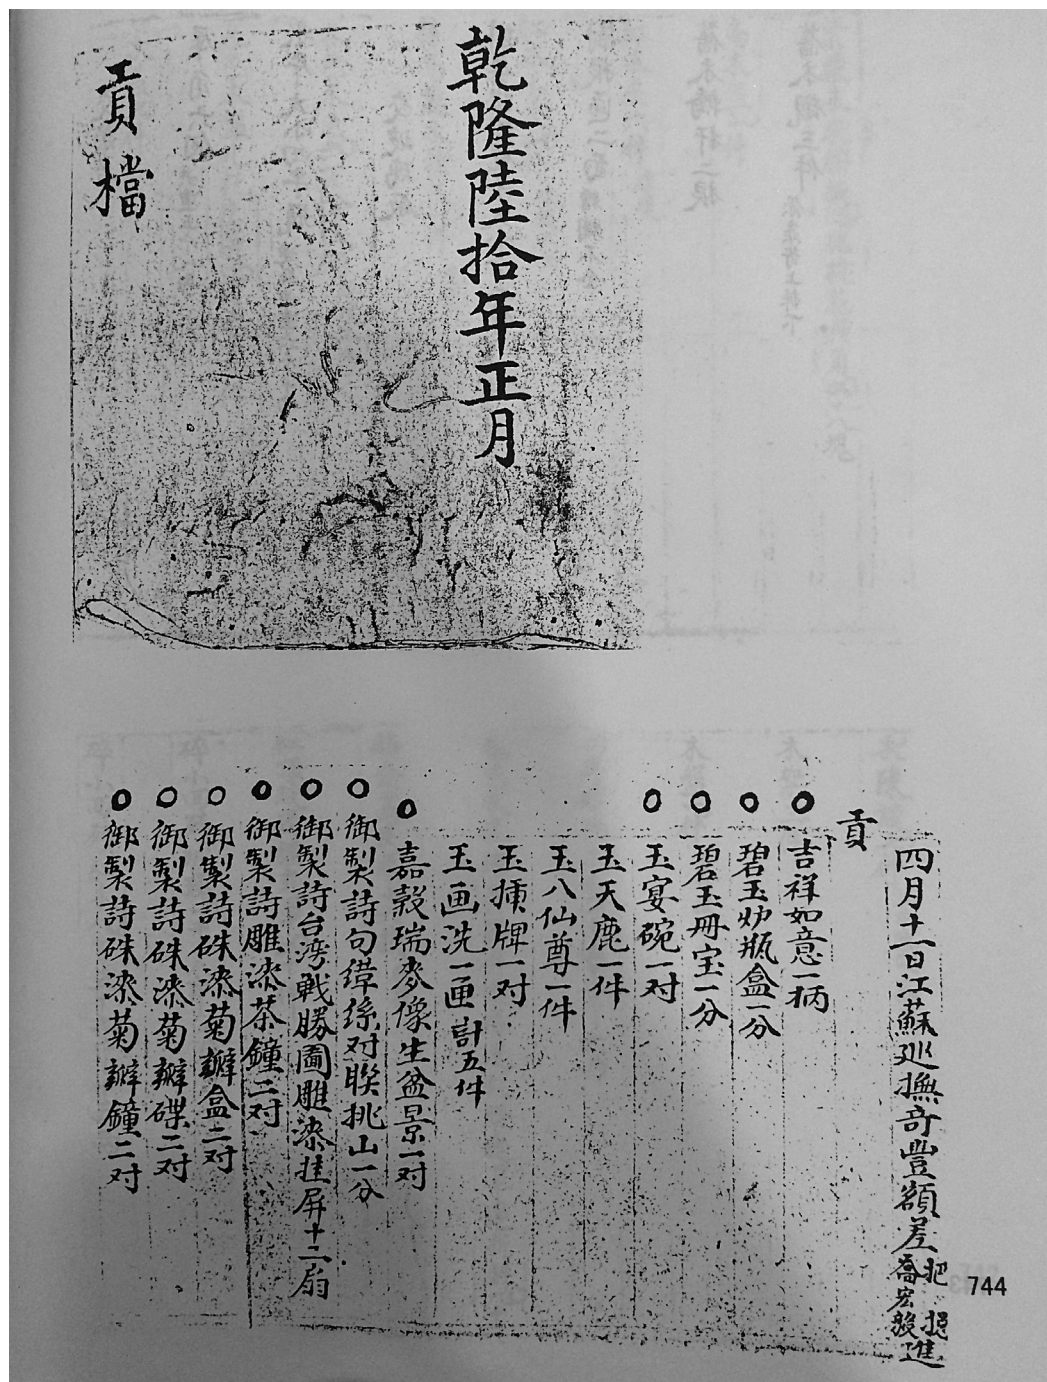 乾隆陸拾年正月
貢檔
四月十一日江蘇廵撫竒豐額差把摠喬宏駿進
貢
吉祥如意一柄
碧玉炉瓶盒一分
碧玉冊宝一分
玉宴碗一对
玉天鹿一件
玉八仙尊一件
玉揷牌一对
玉画洗一匣計五件
嘉穀瑞麥像生盆景一对
御製詩句緙絲对聯挑山一分
御製詩台湾戦勝圖雕漆挂屏十二扇
御製詩雕漆茶鐘二对
御製詩硃漆菊瓣盒二对
御製詩硃漆菊瓣碟二对
御製詩硃漆菊瓣鐘二对
744